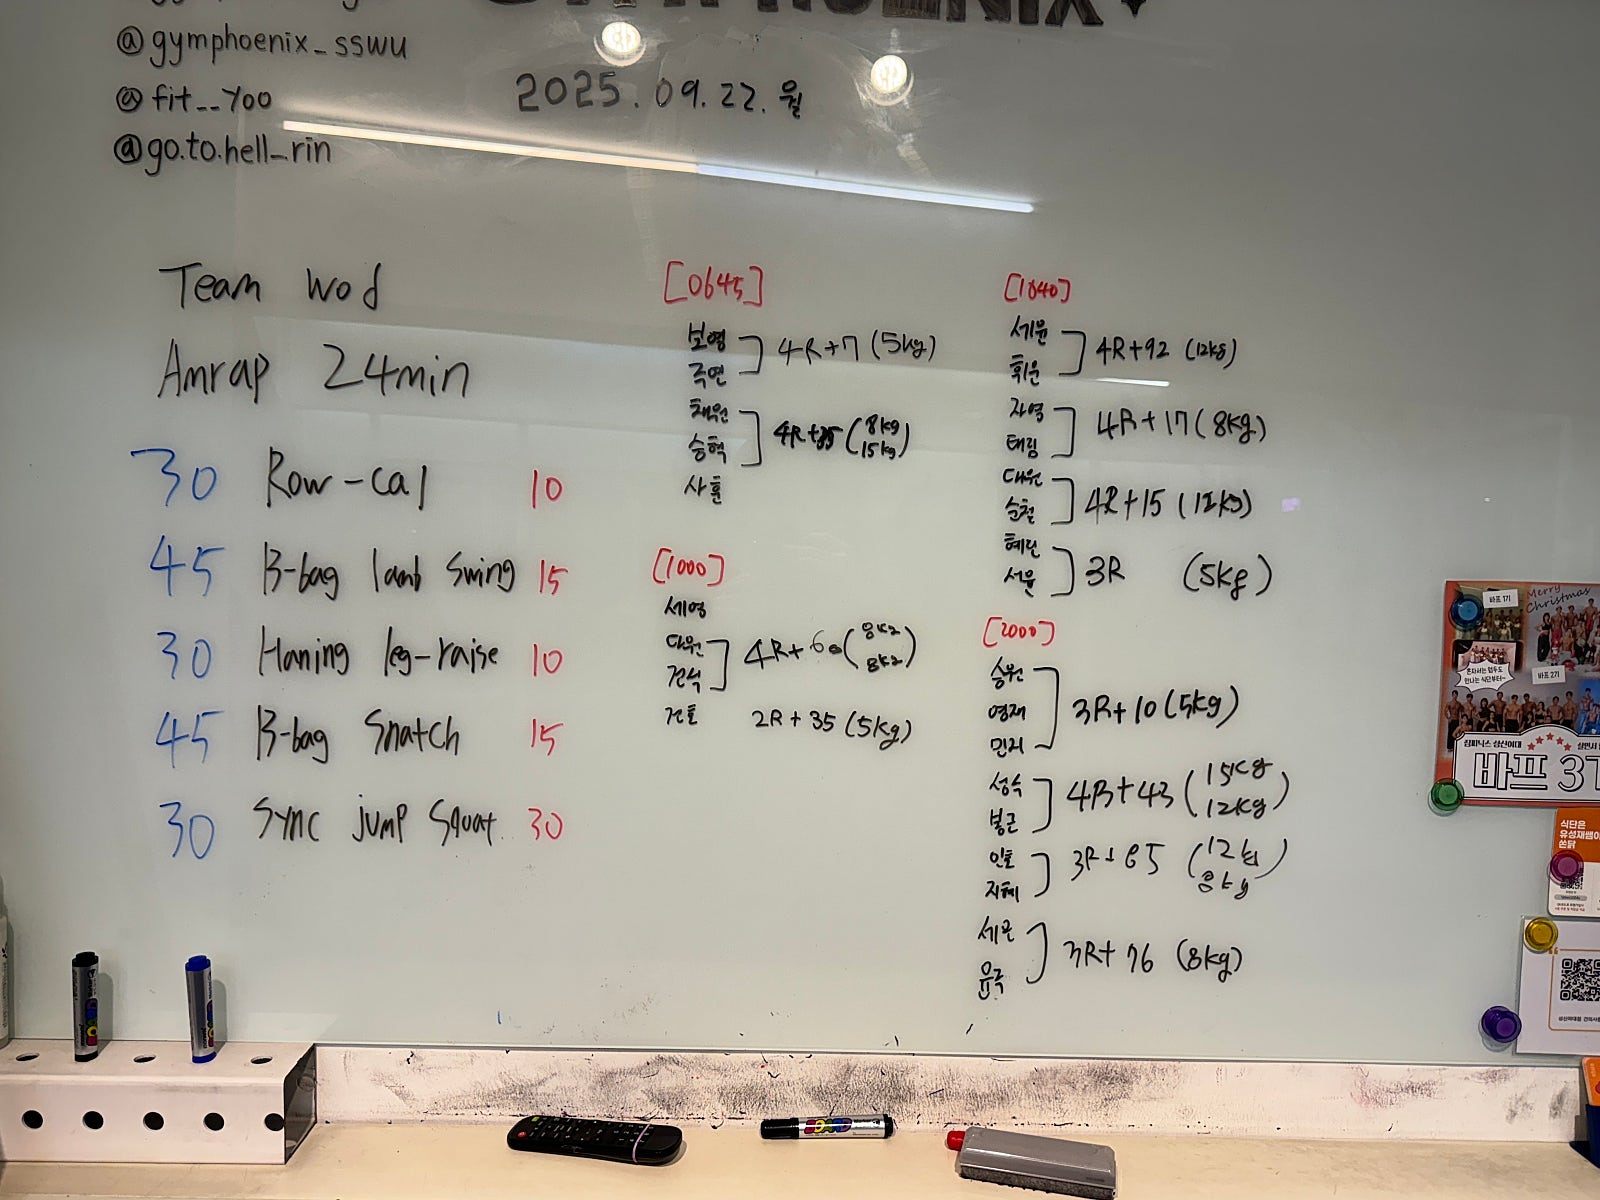 @gymphoenix_sswu
@fit__yoo
@go.to.hell_rin
2025.09.22.월
Team wod
Amrap 24min
30 Row-cal 10
45 B-bag lamb swing 15
30 Haning leg-raise 10
45 B-bag snatch 15
30 Sync jump squat 30
[0645]
보영
국연
4R+7 (5kg)
채원
승혁
4R+35 (8kg
15kg)
사훈
[1000]
세영
다원
건식
4R+60
건호
2R+35 (5kg)
[1840]
세윤
휘운
4R+92 (12kg)
자영
태림
4R+17 (8kg)
대원
순철
4R+15 (12kg)
혜린
서윤
3R (5kg)
[2000]
승원
영재
민지
3R+10 (5kg)
성식
봉근
4R+43 (15kg
12kg)
인호
지혜
3R+65 (12kg
8kg)
세은
윤국
3R+76 (8kg)
Merry
Christmas
바프 1기
바프 2기
혼자서는 엄두도
안나는 식단부터~
짐피닉스 성신여대
바프 3기
식단은
유성재쌤이
쏜닭